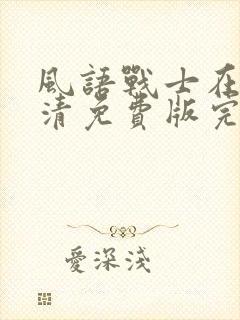 風語戰士在
清免費版完
愛深淺